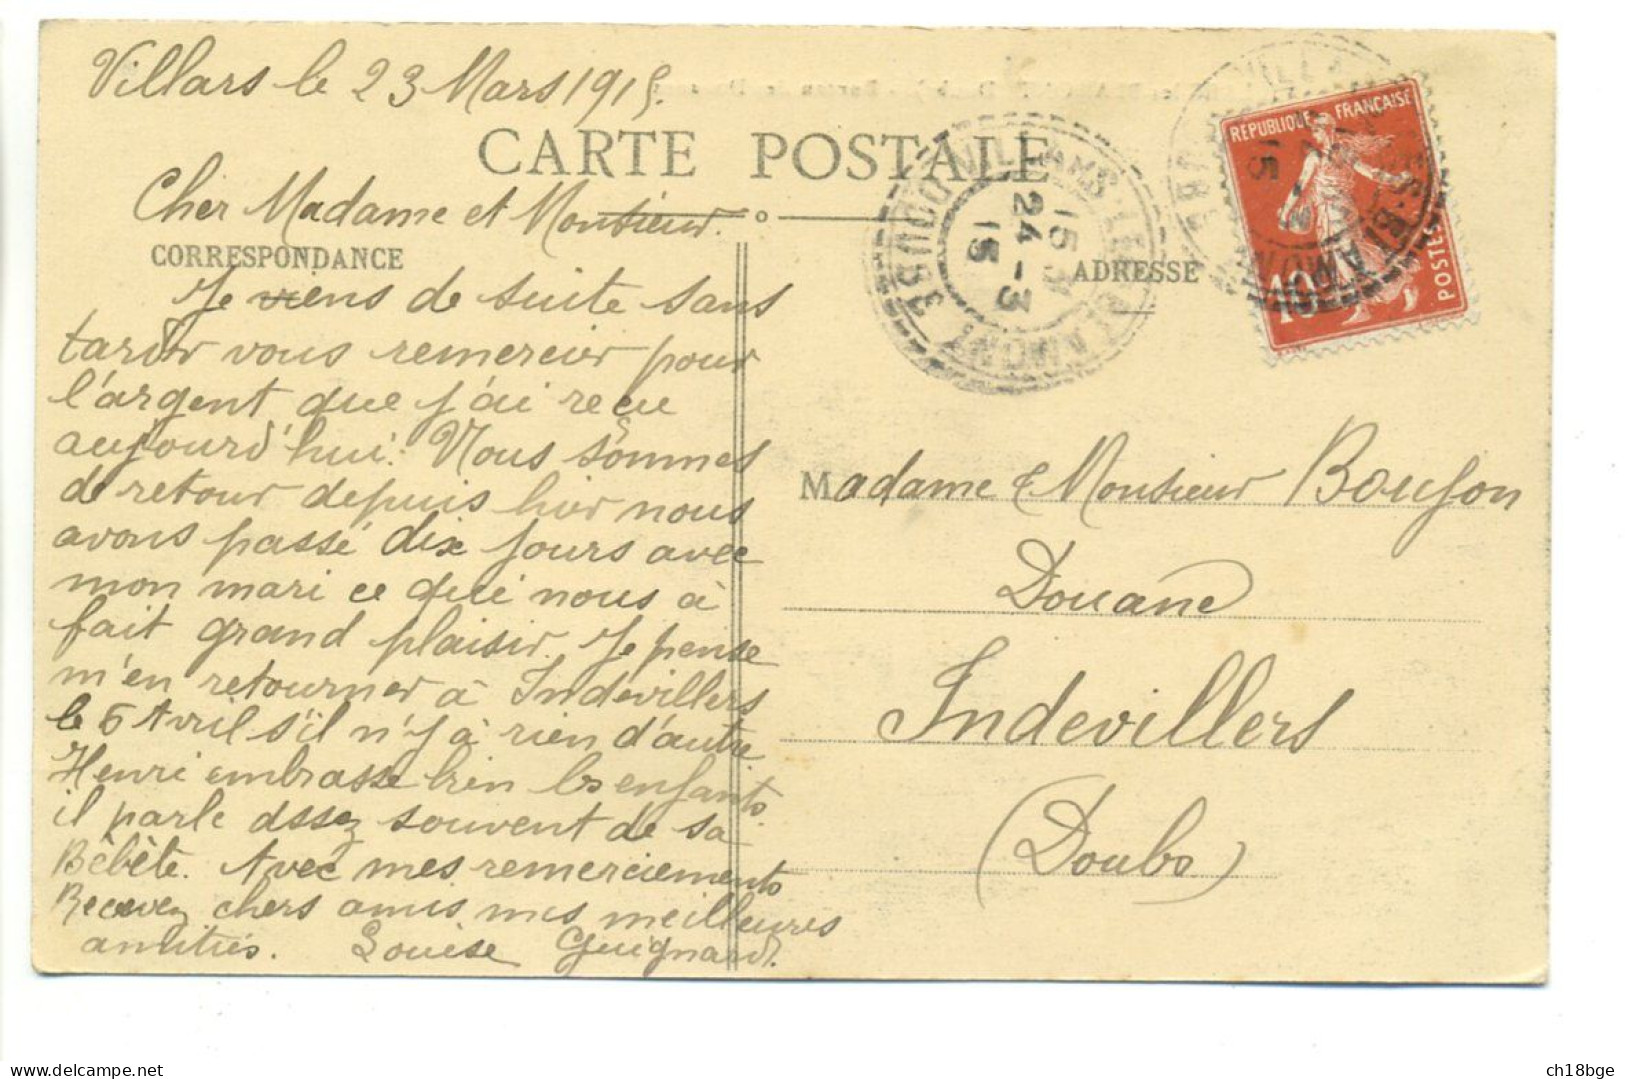 Villars le 23 Mars 1915.
CARTE POSTALE
Cher Madame et Monsieur.
CORRESPONDANCE
Je viens de suite sans
tarder vous remercier pour
l'argent que j'ai reçu
aujourd'hui. Nous sommes
de retour depuis hier nous
avons passé dix jours avec
mon mari ce qui nous à
fait grand plaisir. Je pense
m'en retourner à Indevillers
le 6 Avril s'il n'y à rien d'autre
Henri embrasse bien les enfants
il parle assez souvent de sa
Bèbète. Avec mes remerciements
Recevez chers amis mes meilleures
amitiés. Louise Guignard.
15
24 - 3
15
DOUBS
ADRESSE
REPUBLIQUE FRANÇAISE
10
POSTES
Madame & Monsieur Boujon
Douane
Indevillers
(Doubs)
delcampe.net
ch18bge